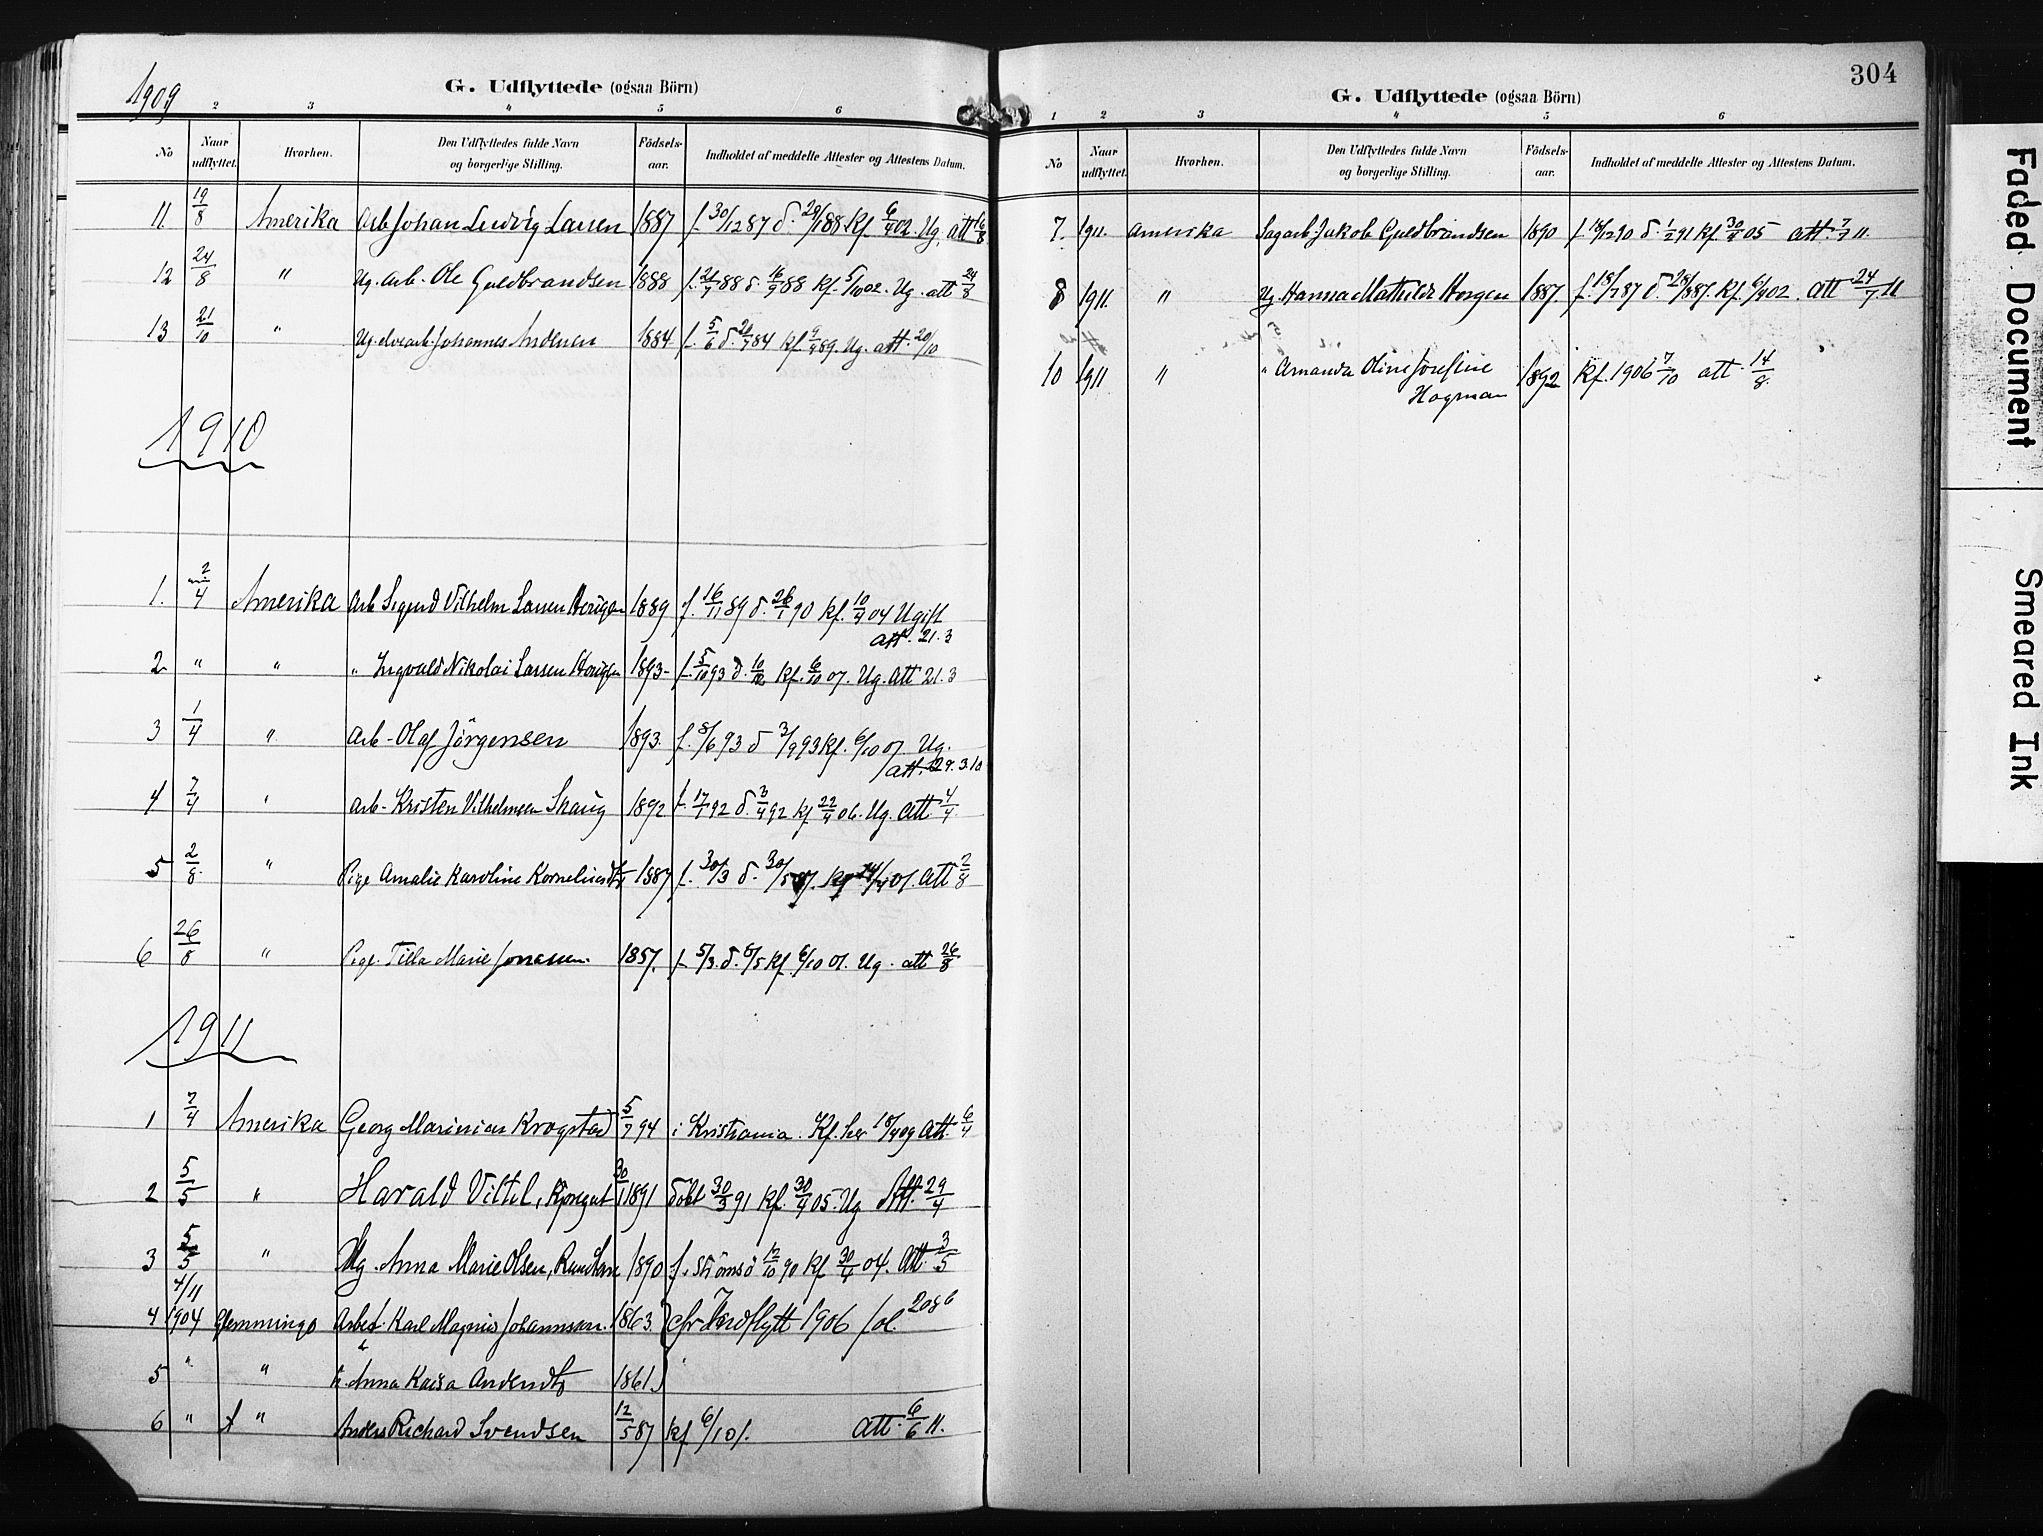 1909
G. Udflyttede (ogsaa Börn)
2 3 4 5 6
No Naar udflyttet. Hvorhen. Den Udflyttedes fulde Navn og borgerlige Stilling. Fødsels-aar. Indholdet af meddelte Attester og Attestens Datum.
11. 19/8 Amerika Arb. Johan Ludvig Larsen 1887 f. 30/12 87 d. 29/1 88 Kf. 6/4 02. Ug. att 16/8
12 24/8 " Ug. arb. Ole Guldbrandsen 1888 f. 21/7 88 d. 16/9 88 Kf. 5/10 02. Ug. att 24/8
13 21/10 " Ug. arb. Johannes Andersen 1884 f. 5/6 d. 20/7 84 kf. 89. Ug. att. 20/10
1910
1. 2/4 Amerika Arb Sigurd Vilhelm Larsen 1889 f. 16/11 89 d. 26/1 90 Kf. 10/4 04 Ugift
att. 21.3
2 " " " Ingvald Nikolai Larsen 1893 f. 5/10 93 d. 10/12 Kf. 6/10 07. Ug. Att 21.3
3 1/4 " Arb- Olaf Jörgensen 1893. f. 8/6 93 d 3/9 93 Kf. 6/10 07 Ug.
att. 29.3.10
4 7/4 " Arb- Kristen Vilhelmsen Skaug 1892 f. 17/1 92 d. 3/4 92 Kf 22/4 06. Ug. Att 4/4
5 2/8 " Pige Amalie Karoline Korneliusdtr 1887 f. 30/3 d. 30/5 87. Kf 14/4 01. Att 2/8
6 26/8 " Pige. Tilla Marie Jonassen. 1857. f. 5/3. d. 8/5 Kf. 6/10 01. Ug. att 26/8
1911
1 7/4 Amerika Georg Marinius Krogstad 5/7 94 i Kristiania. Kf. her 18/4 09 Att. 6/4
2 5/5 " Harald Viktil, 30/1 1891 döbt 30/3 91 Kf. 30/4 05. Ug Att. 29/4
3 5/5 " Ug. Anna Marie Olsen, 1890 f. i Strömsö 12/10 90 Kf 30/4 04. Att. 3/5
4 4/11 1904 Glemminge Arbef. Karl Magnus Johannson. 1863. cfr Indflytt 1906 fol. 208 6
5 " " h. Anna Kaisa Andersdtr 1861.
6 " " Anders Richard Svendsen 12/5 87 kf 6/10 1. Att. 6/6 11.
304
G. Udflyttede (ogsaa Börn)
1 2 3 4 5 6
No Naar udflyttet. Hvorhen. Den Udflyttedes fulde Navn og borgerlige Stilling. Fødsels-aar. Indholdet af meddelte Attester og Attestens Datum.
7. 1911. Amerika Sagarb Jakob Guldbrandsen 1890 f. 18/12 90 d. 1/2 91 kf. 30/4 05 att. 7/7 11.
8 1911. " Ug. Hanna Mathilde Horgen 1887. f. 18/7 87 d. 28/8 87. Kf. 6/4 02. Att 24/7 11
10 1911 " " Amanda Oline Josefine 1892 Kf. 1906 7/10 att. 14/8.
Hagman
Faded Document
Smeared Ink